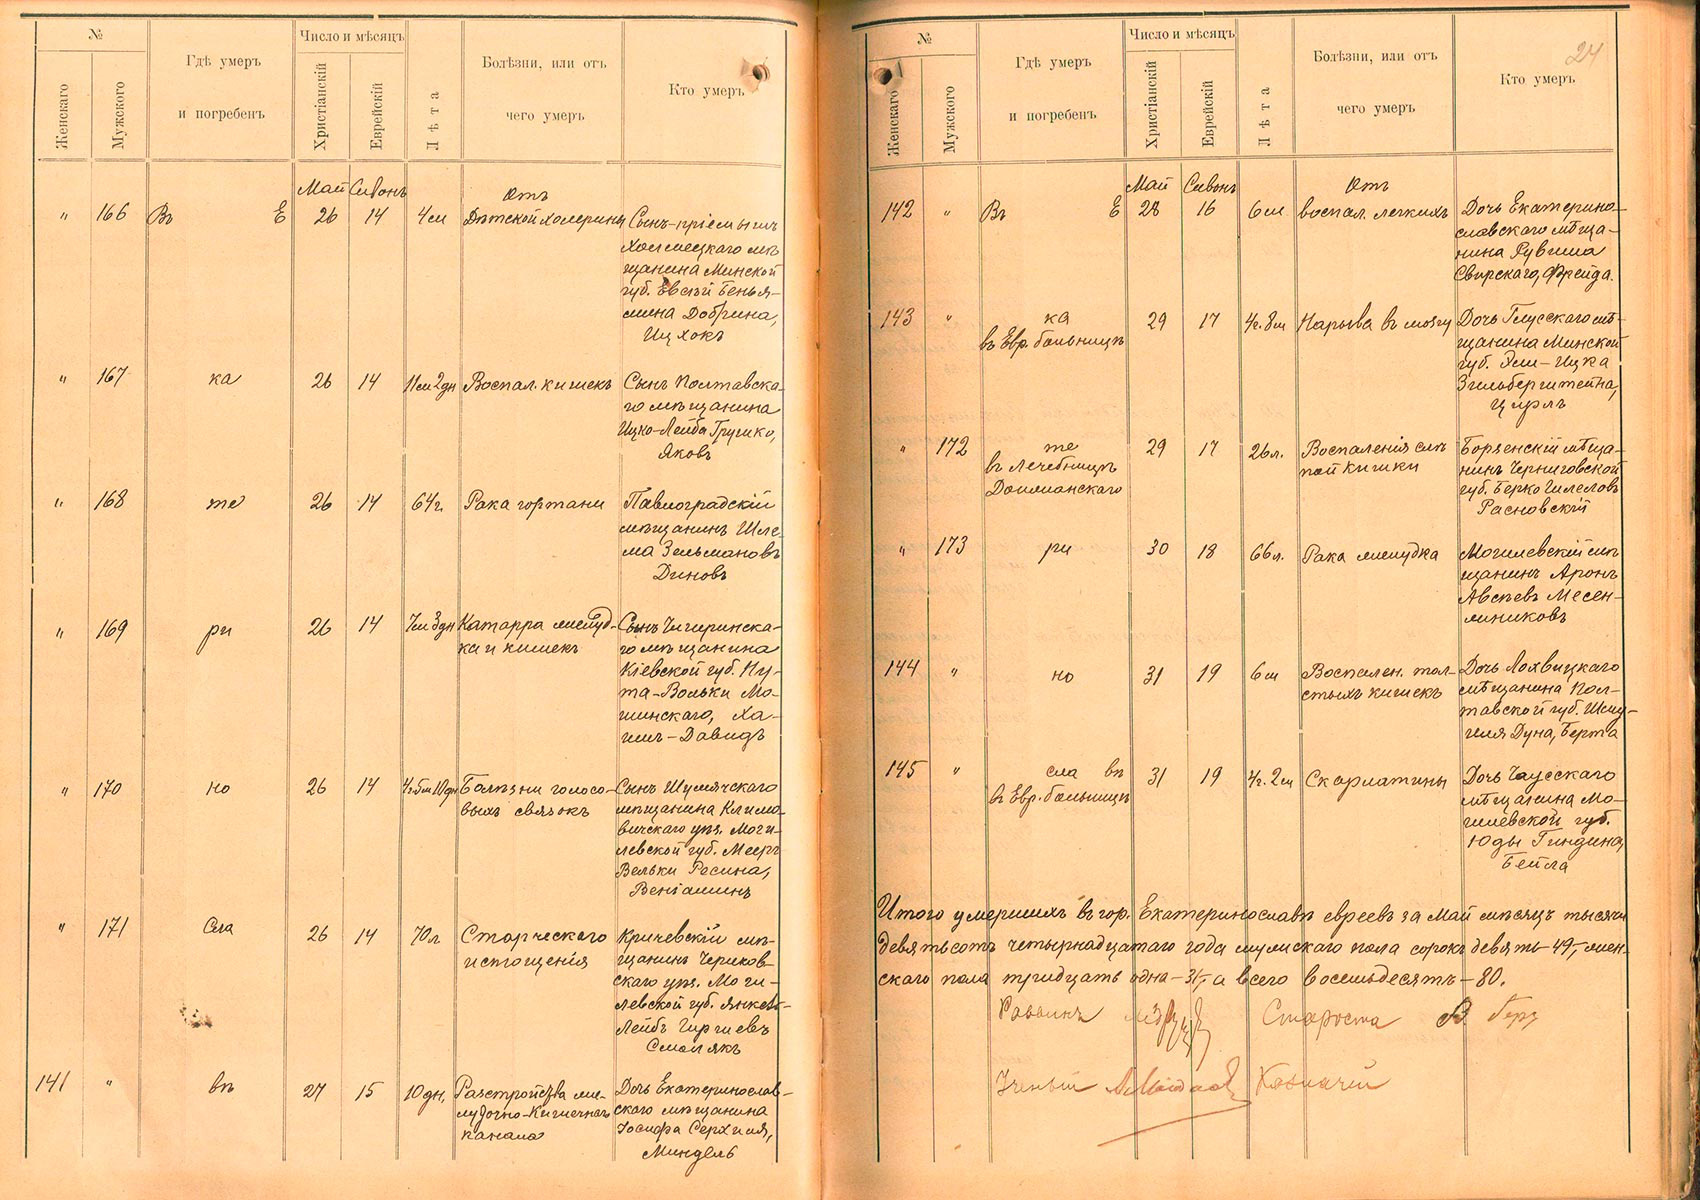 №
Женскаго
Мужского
Гдѣ умеръ
и погребенъ
Число и мѣсяцъ
Христіанскій
Еврейскій
Лѣта
Болѣзни, или отъ
чего умеръ
Кто умеръ
Май Сивонъ
Отъ
" 166 Въ Е 26 14 4 м Дѣтской холерины Сынъ-пріемышъ
Холмецкаго мѣ-
щанина Минской
губ. Евсѣй Бенья-
мина Добрина,
Ицхокъ
" 167 ка 26 14 11м 2дн Воспал. кишекъ Сынъ Полтавска-
го мѣщанина
Ицко-Лейба Грушко,
Яковъ
" 168 те 26 14 64 г. Рака гортани Павлоградскій
мѣщанинъ Шле-
ма Зельмановъ
Диновъ
" 169 ри 26 14 7м 3дн Катарра желуд- Сынъ Чигиринска-
ка и кишекъ го мѣщанина
Кіевской губ. Ну-
та-Вольки Мо-
шинскаго, Ха-
имъ-Давидъ
" 170 но 26 14 4г.5м10дн Болѣзни голосо- Сынъ Шумячскаго
выхъ связокъ мѣщанина Климо-
вичскаго уѣз. Моги-
левской губ. Мееръ
Вельки Росина,
Веніаминъ
" 171 Сла 26 14 70 л Старческаго Кричевскій мѣ-
истощенія щанинъ Чериков-
скаго уѣз. Моги-
левской губ. Янкель-
Лейбъ Гиршевъ
Смолякъ
141 " вѣ 27 15 10 дн. Разстройства же- Дочь Екатеринослав-
лудочно-кишечнаго скаго мѣщанина
канала Іосифа Серхиля,
Миндель
24
№
Женскаго
Мужского
Гдѣ умеръ
и погребенъ
Число и мѣсяцъ
Христіанскій
Еврейскій
Лѣта
Болѣзни, или отъ
чего умеръ
Кто умеръ
Май Сивонъ
Отъ
142 " Въ Е 28 16 6 м воспал. легкихъ Дочь Екатерино-
славскаго мѣща-
нина Рувина
Свирскаго, Фрейда.
143 " ка 29 17 4г. 8м Нарыва въ мозгу Дочь Глусскаго мѣ-
въ Евр. больницѣ щанина Минской
губ. Эли-Ицка
Зильберштейна,
Цирль
" 172 те 29 17 26 л. Воспаленія слѣ- Борзенскій мѣща-
въ лечебницѣ пой кишки нинъ Черниговской
Доиманскаго губ. Берко Гилеловъ
Расновскій
" 173 ри 30 18 66 л. Рака желудка Могилевскій мѣ-
щанинъ Аронъ
Авсѣевъ Месен-
жниковъ
144 " но 31 19 6 м Воспален. тол- Дочь Лохвицкаго
стыхъ кишекъ мѣщанина Пол-
тавской губ. Шму-
иля Дуна, Берта
145 " сла вѣ 31 19 4г. 2м Скарлатины Дочь Чаусскаго
въ Евр. больницѣ мѣщанина Мо-
гилевской губ.
Юды Гиндина,
Бейла
Итого умершихъ въ гор. Екатеринославѣ евреевъ за Май мѣсяцъ тысяча
девятьсотъ четырнадцатаго года мужскаго пола сорокъ девять - 49, - жен-
скаго пола тридцать одна - 31, - а всего восемьдесятъ - 80.
Раввинъ Староста
Ученый Казначей